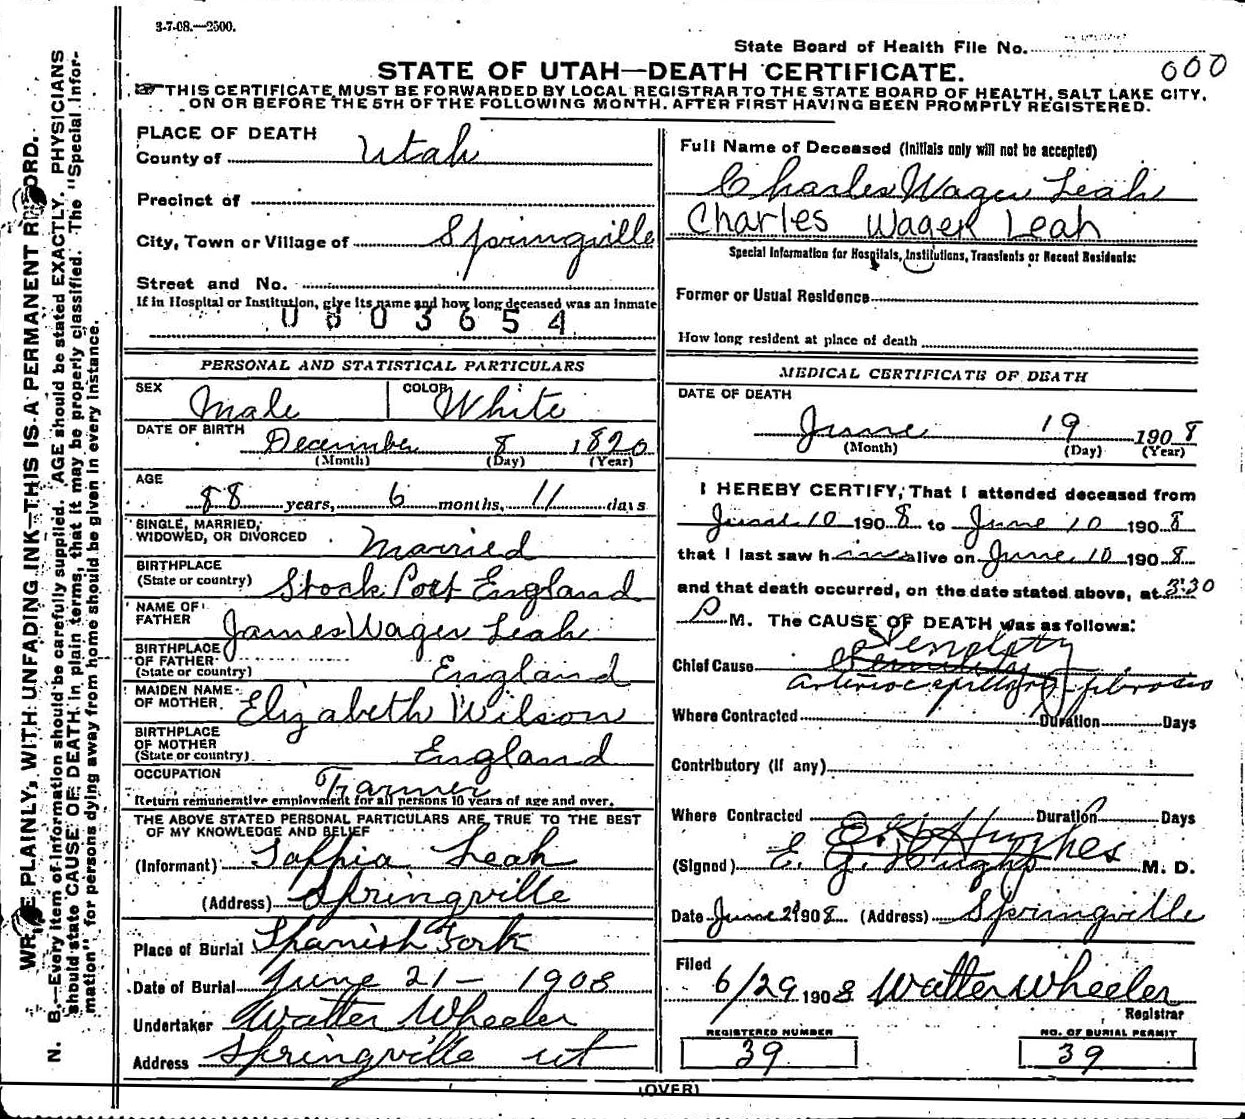 3-7-08.—2500.
State Board of Health File No.
000
STATE OF UTAH—DEATH CERTIFICATE.
THIS CERTIFICATE MUST BE FORWARDED BY LOCAL REGISTRAR TO THE STATE BOARD OF HEALTH, SALT LAKE CITY,
ON OR BEFORE THE 5TH OF THE FOLLOWING MONTH. AFTER FIRST HAVING BEEN PROMPTLY REGISTERED.
WRITE PLAINLY, WITH UNFADING INK—THIS IS A PERMANENT RECORD.
N. B.—Every item of information should be carefully supplied. AGE should be stated EXACTLY. PHYSICIANS
should state CAUSE OF DEATH in plain terms, that it may be properly classified. The "Special Infor-
mation" for persons dying away from home should be given in every instance.
PLACE OF DEATH
County of Utah
Precinct of
City, Town or Village of Springville
Street and No.
If in Hospital or Institution, give its name and how long deceased was an Inmate
0803654
PERSONAL AND STATISTICAL PARTICULARS
SEX Male COLOR White
DATE OF BIRTH December 8 1820
(Month) (Day) (Year)
AGE
88 years, 6 months, 11 days
SINGLE, MARRIED,
WIDOWED, OR DIVORCED Married
BIRTHPLACE
(State or country) Stock Port England
NAME OF
FATHER James Wager Leah
BIRTHPLACE
OF FATHER
(State or country) England
MAIDEN NAME
OF MOTHER Elizabeth Wilson
BIRTHPLACE
OF MOTHER
(State or country) England
OCCUPATION Farmer
Return remunerative employment for all persons 10 years of age and over.
THE ABOVE STATED PERSONAL PARTICULARS ARE TRUE TO THE BEST
OF MY KNOWLEDGE AND BELIEF
(Informant) Saphia Leah
(Address) Springville
Place of Burial Spanish Fork
Date of Burial June 21 - 1908
Undertaker Walter Wheeler
Address Springville ut
Full Name of Deceased (Initials only will not be accepted)
Charles Wager Leah
Charles Wager Leah
Special Information for Hospitals, Institutions, Transients or Recent Residents:
Former or Usual Residence
How long resident at place of death
MEDICAL CERTIFICATE OF DEATH
DATE OF DEATH
June 19 1908
(Month) (Day) (Year)
I HEREBY CERTIFY, That I attended deceased from
June 10 1908 to June 10 1908
that I last saw h alive on June 10 1908
and that death occurred, on the date stated above, at 3:30
P M. The CAUSE OF DEATH was as follows:
Chief Cause
arteriocapillary fibrosis
Where Contracted Duration Days
Contributory (if any)
Where Contracted Duration Days
E. G. Hughes
(Signed) E. G. Hughes M. D.
Date June 29 1908 (Address) Springville
Filed
6/29 1908 Walter Wheeler
Registrar
REGISTERED NUMBER NO. OF BURIAL PERMIT
39 39
(OVER)